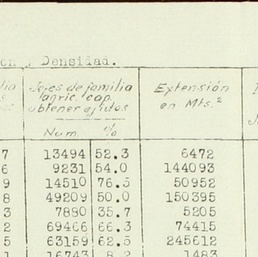 on y Densidad.
Jefes de familia Extensión
agric. cap. en Mts.²
obtener ejidos
Num. %
7 13494 52.3 6472
6 9231 54.0 144093
9 14510 76.5 50952
8 49209 50.0 150395
3 7880 35.7 5205
2 69466 66.3 74415
5 63159 62.5 245612
1 16743 8.2 1483